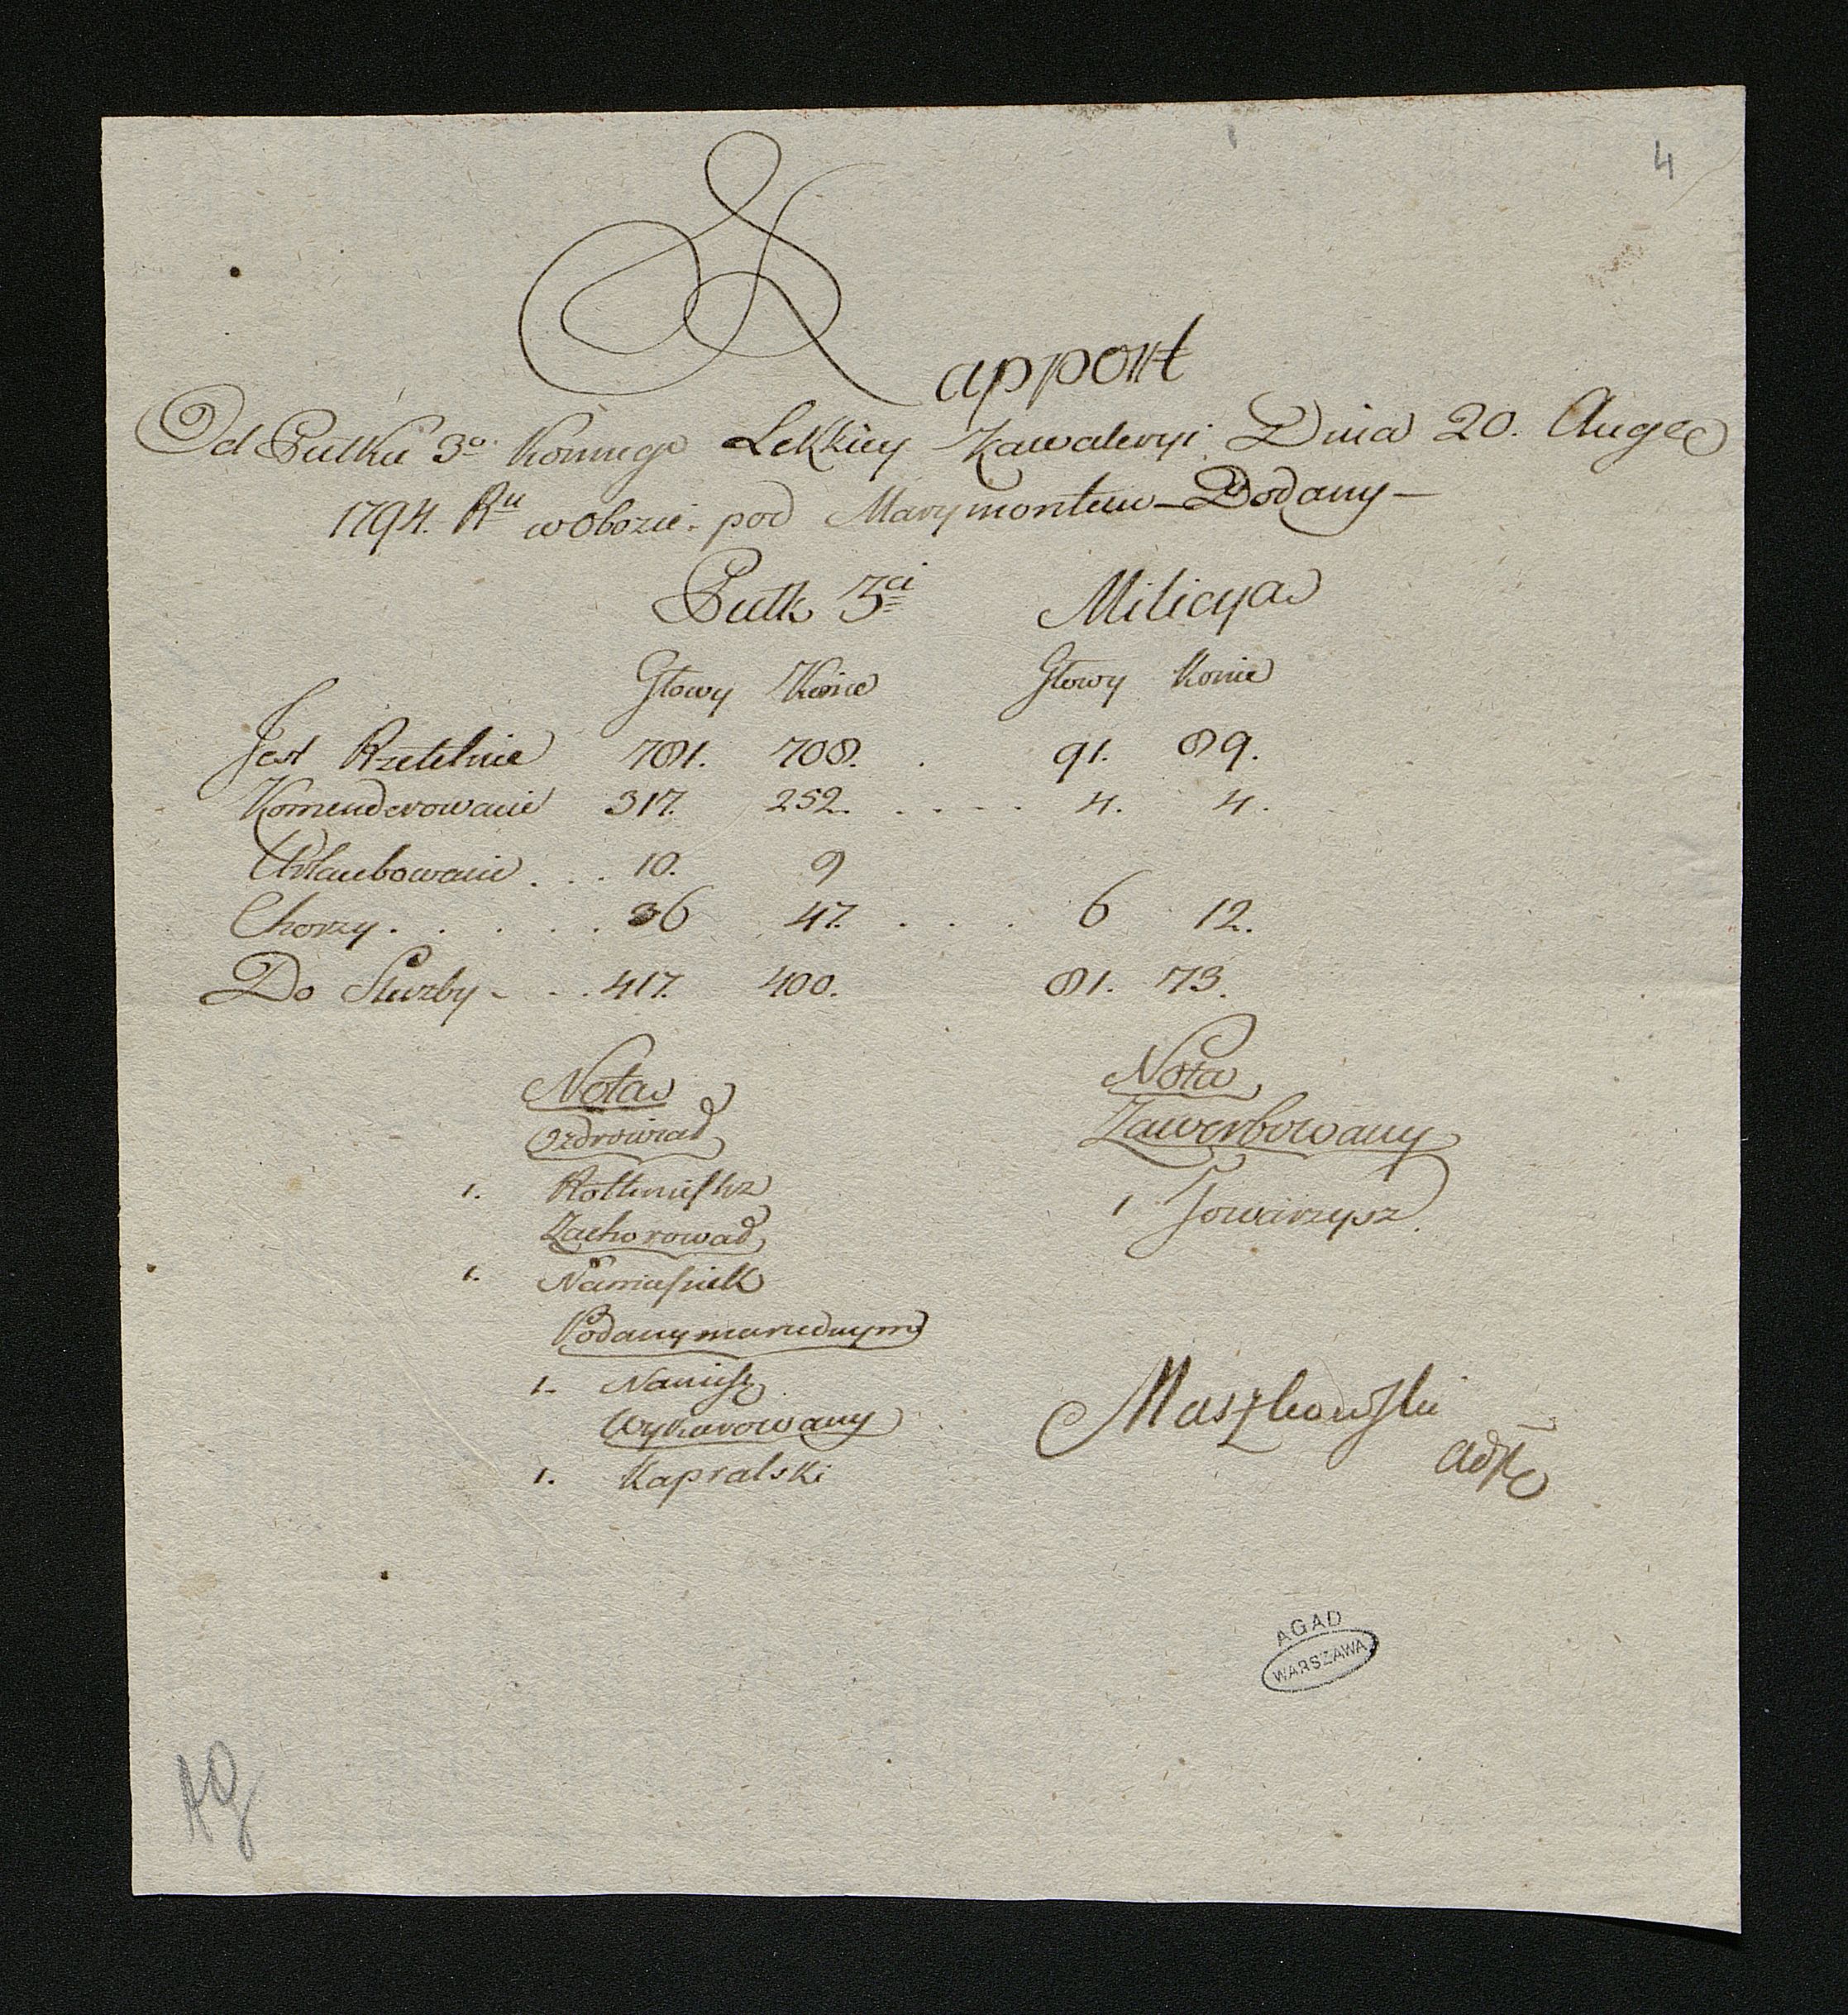 4
Rapport
Od Pułku 3o. Konnego Lekkiey Kawaleryi Dnia 20. Auge
1794. Ru w Obozie pod Marymontem – Podany –
Pułk 3ci Milicya
Głowy Konie Głowy Konie
Jest Rzetelnie 781. 708. . 91. 89.
Komenderowanie 317. 252. . . . . 4. 4.
Urlaubowanie . . . 10. 9
Chorzy . . . . . 36 47. . . . 6 12.
Do Służby - . . 417. 400. 81. 73.
Nota Nota
Ozdrowiał Zawerbowany
1. Rottmistrz 1 Towarzysz.
Zachorował
1. Namiesnik
Podany marudnym
1. Namies:
Wykarowany
1. Kapralski
Maszkowski
Adju
AGAD
WARSZAWA